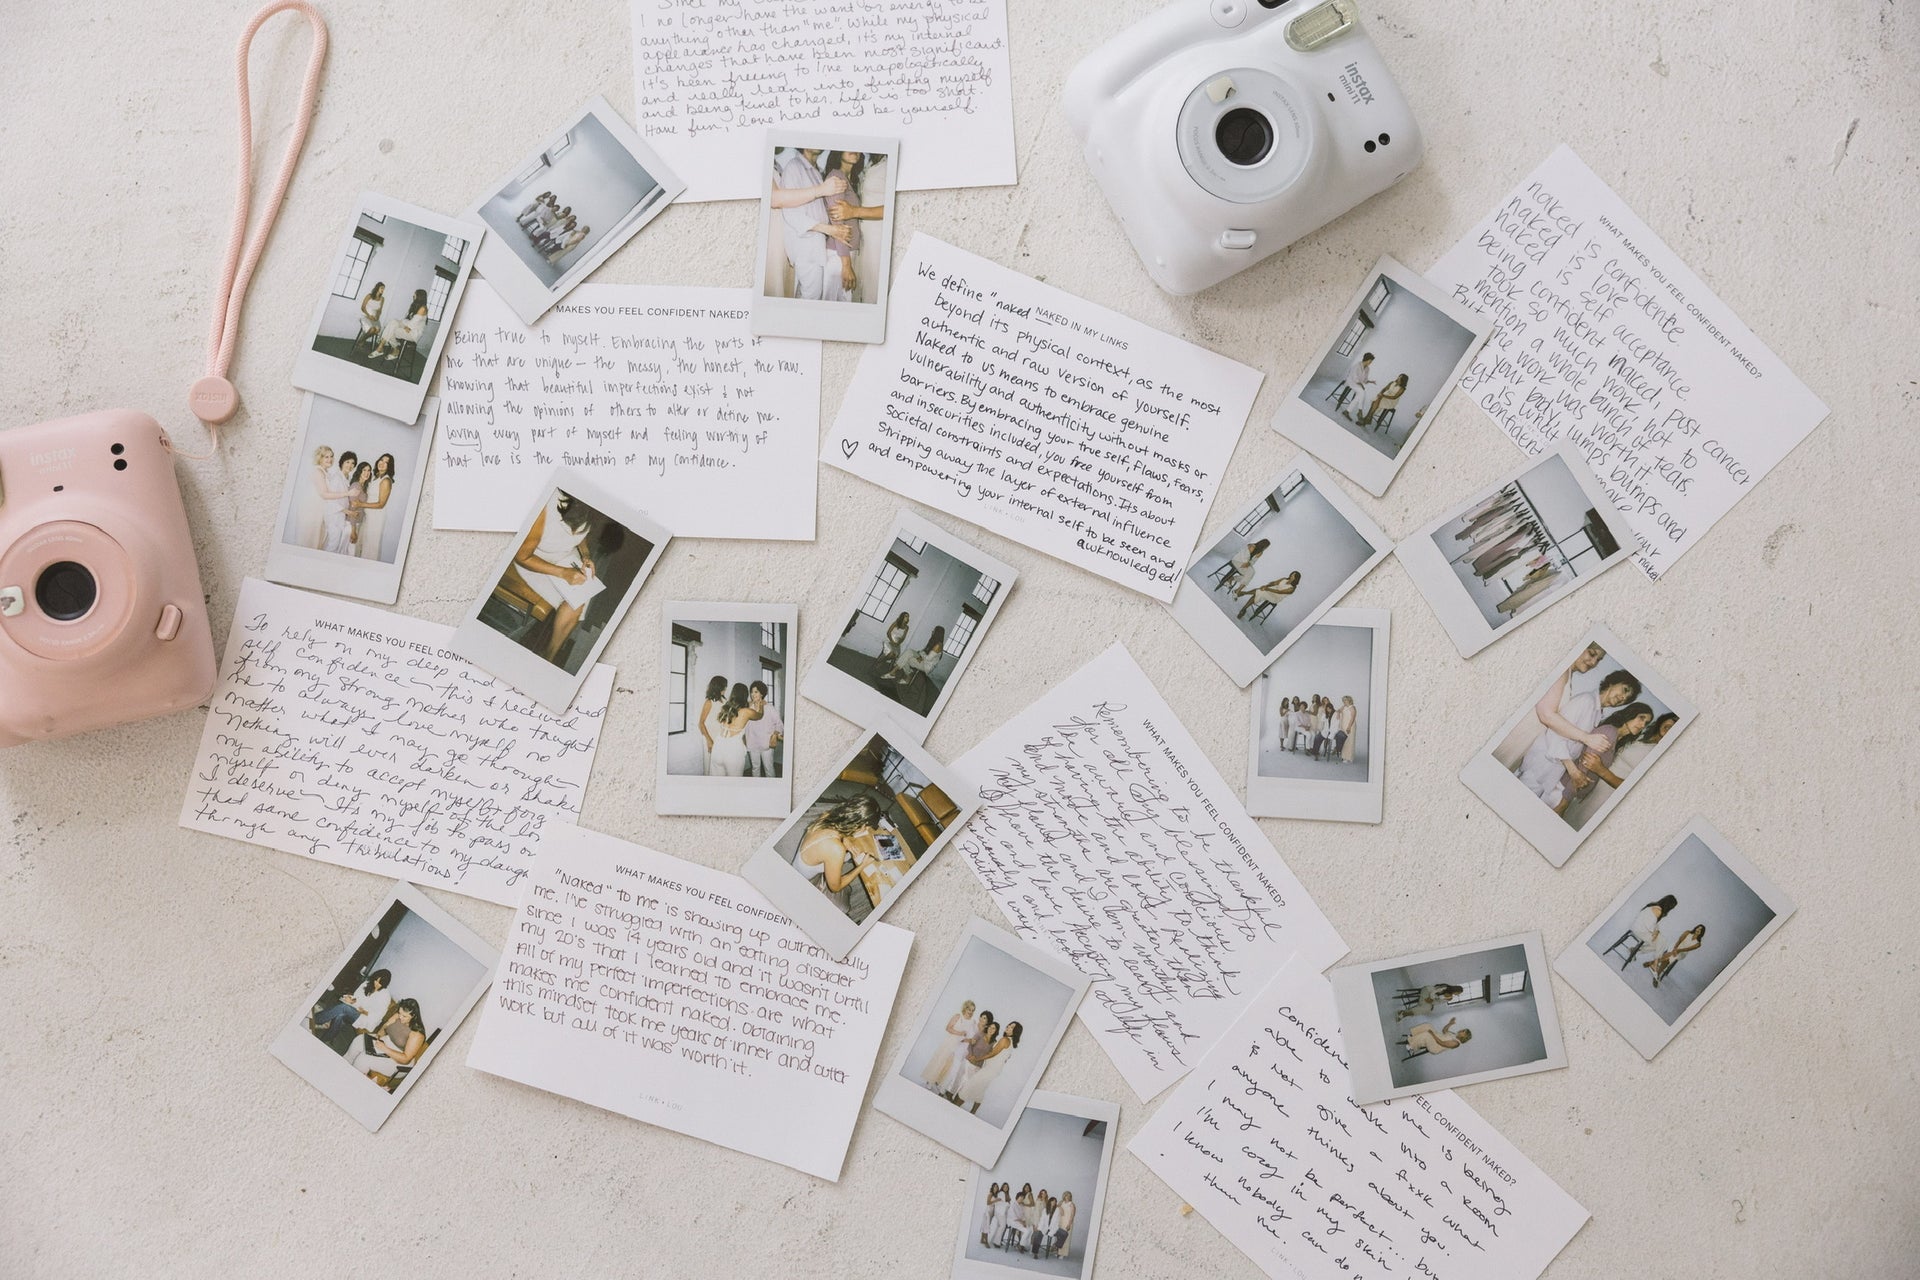 I no longer have the want or energy to be
anything other than "me". While my physical
appearance has changed, it's my internal
changes that have been most significant.
It's been freeing to live unapologetically
and really lean into finding myself
and being kind to her. Life is too short.
Have fun, love hard and be yourself.
instax
mini 11
MAKES YOU FEEL CONFIDENT NAKED?
Being true to myself. Embracing the parts of
me that are unique – the messy, the honest, the raw.
Knowing that beautiful imperfections exist & not
allowing the opinions of others to alter or define me.
Loving every part of myself and feeling worthy of
that love is the foundation of my confidence.
NAKED IN MY LINKS
We define "naked"
beyond its physical context, as the most
authentic and raw version of yourself.
Naked to us means to embrace genuine
vulnerability and authenticity without masks or
barriers. By embracing your true self, flaws, fears,
and insecurities included, you free yourself from
societal constraints and expectations. Its about
stripping away the layer of external influence
and empowering your internal self to be seen and
awknowledged!
LINK • LOU
WHAT MAKES YOU FEEL CONFIDENT NAKED?
naked is confidence
naked is love
naked is self acceptance
being confident naked, post cancer
took so much work not to
mention a whole bunch of tears.
But the work was worth it.
your body, lumps bumps and
is what
confident
naked
instax
mini 11
WHAT MAKES YOU FEEL CONF
To rely on my deep and
self confidence – this I received
from my strong mother who taught
me to always love myself no
matter what I may go through –
Nothing will ever darken or shake
my ability to accept myself,
myself or deny myself of the
I deserve – It's my job to pass on
that same confidence to my
through any tribulations!
WHAT MAKES YOU FEEL CONFIDENT
"Naked" to me is showing up authentically
me. I've struggled with an eating disorder
since I was 14 years old and it wasn't until
my 20's that I learned to embrace me.
All of my perfect imperfections are what
makes me confident naked. Obtaining
this mindset took me years of inner and outer
work but all of it was worth it.
LINK • LOU
WHAT MAKES YOU FEEL CONFIDENT NAKED?
Remembering to be thankful
for all my blessings, to
be aware and conscious
of having the ability to think
and move and love.
my strengths are greater than
my flaws and I am worthy.
I have the desire to learn and
live and love, accepting my flaws
and looking at life in
positive way.
FEEL CONFIDENT NAKED?
Confidence to me is being
able to walk into a room
& not give a f*xk what
anyone thinks about you.
I may not be perfect... but
I'm cozy in my skin
I know nobody can do
than me.
LINK • LOU